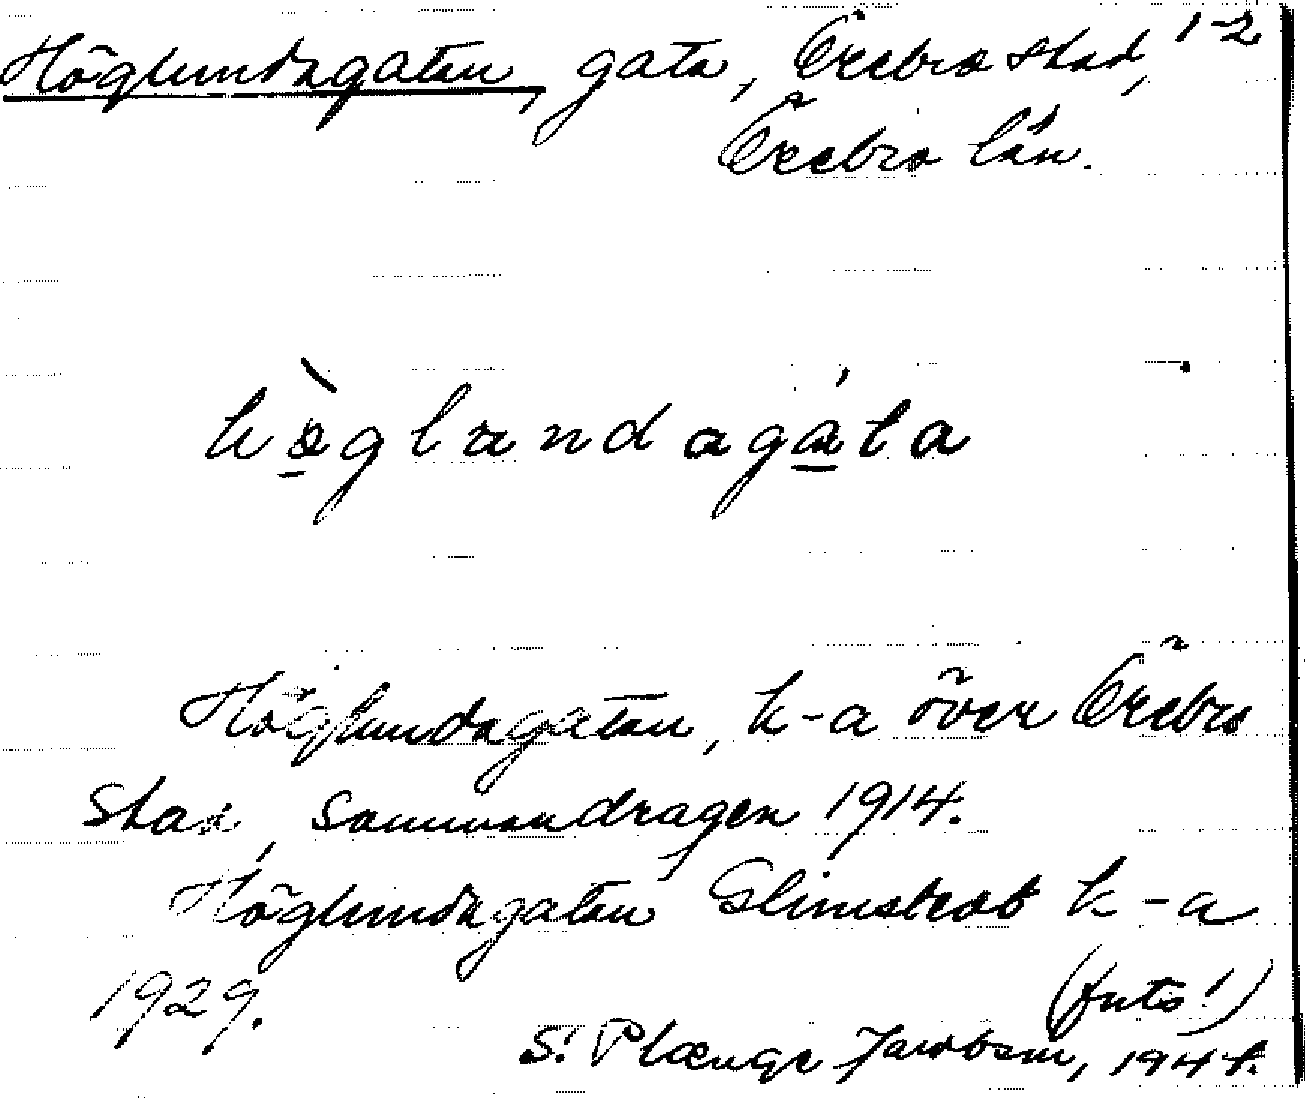 Höglundagatan, gata, Örebro stad, 1-2
Örebro län.
hö̀glundagáta
Höglundagatan, k-a över Örebro
stad, sammandragen 1914.
Höglundagatan Glimstedt k-a
1929.
(forts!)
S. Plænge Jacobson, 1944.